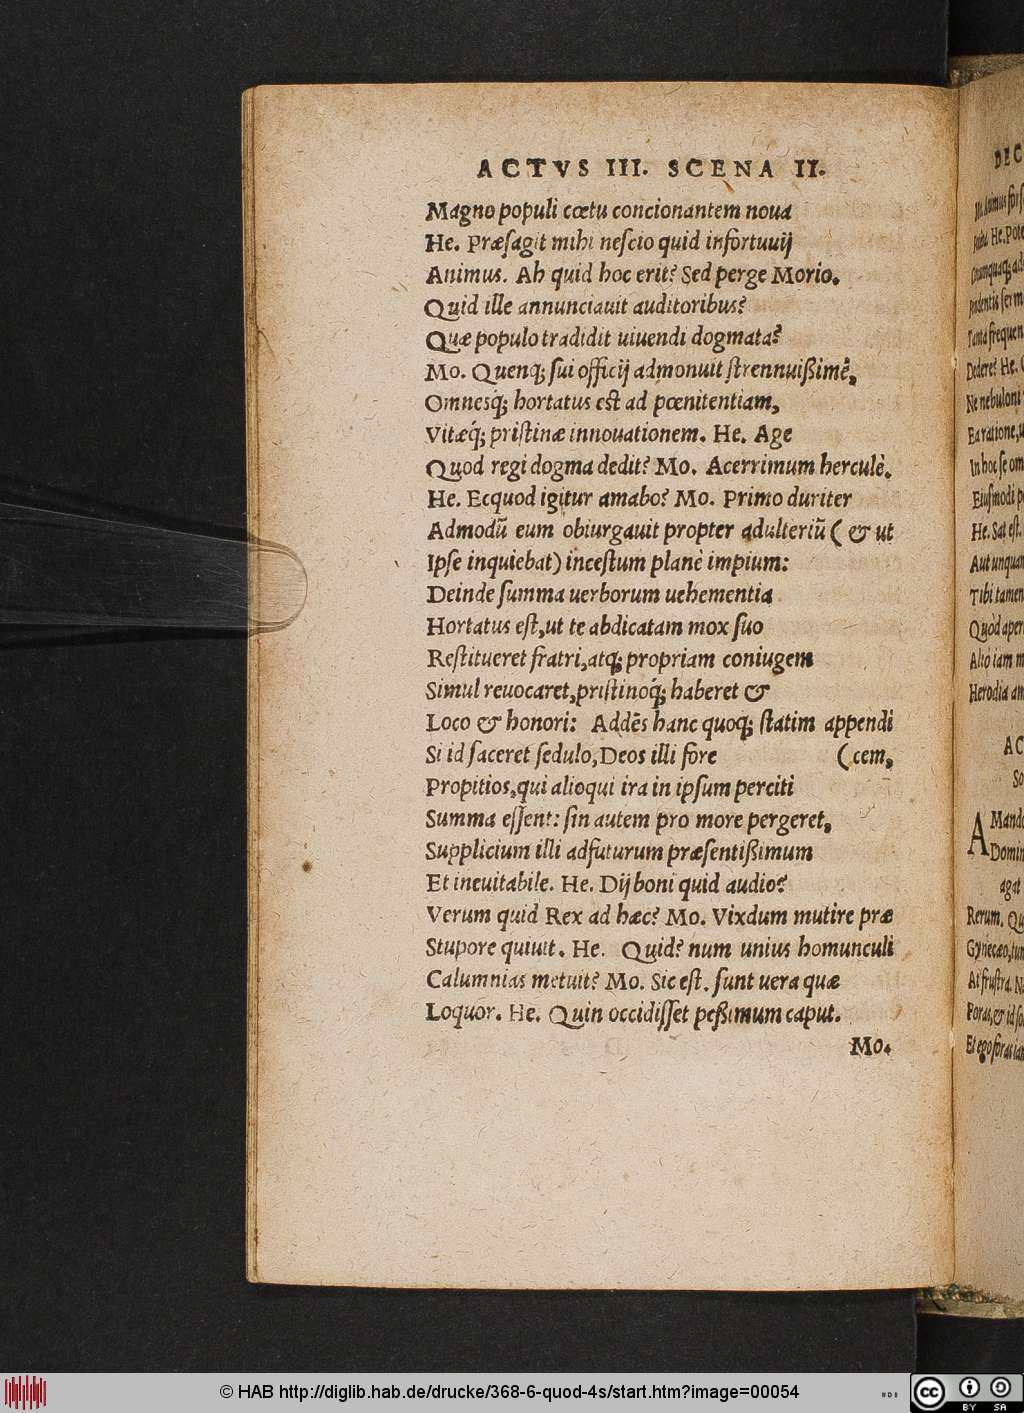 ACTVS III. SCENA II.
Magno populi cœtu concionantem noua
He. Præſagit mihi neſcio quid infortuuij
Animus. Ah quid hoc erit? Sed perge Morio.
Quid ille annunciauit auditoribus?
Quæ populo tradidit uiuendi dogmata?
Mo. Quenq; ſui officij admonuit ſtrennuißimè,
Omnesq́; hortatus eſt ad pœnitentiam,
Vitæq́; priſtinæ innouationem. He. Age
Quod regi dogma dedit? Mo. Acerrimum herculè.
He. Ecquod igitur amabo? Mo. Primo duriter
Admodũ eum obiurgauit propter adulteriũ ( & ut
Ipſe inquiebat) inceſtum planè impium:
Deinde ſumma uerborum uehementia
Hortatus eſt, ut te abdicatam mox ſuo
Reſtitueret fratri, atq; propriam coniugem
Simul reuocaret, priſtinoq́; haberet &
Loco & honori: Addẽs hanc quoq; ſtatim appendi
Si id faceret ſedulo, Deos illi fore (cem,
Propitios, qui alioqui ira in ipſum perciti
Summa eſſent: ſin autem pro more pergeret,
Supplicium illi adfuturum præſentißimum
Et ineuitabile. He. Dij boni quid audio?
Verum quid Rex ad hæc? Mo. Vixdum mutire præ
Stupore quiuit. He. Quid? num unius homunculi
Calumnias metuit? Mo. Sic eſt. ſunt uera quæ
Loquor. He. Quin occidiſſet peßimum caput.
Mo.
DEC
He. Pote
Tanta frequen
Dedere? He.
Ne nebuloni
Ea ratione, u
In hoc ſe om
Eiuſmodi p
He. Sat eſt.
Aut unquam
Tibi tamen
Quòd aper
Alio iam m
Herodia am
AC
So
AMando
Domin
agat
Rerum. Qu
Gynecæo, tun
At fruſtra. N
Foras, & id ſo
Et ego foras iam
© HAB http://diglib.hab.de/drucke/368-6-quod-4s/start.htm?image=00054
cc BY SA